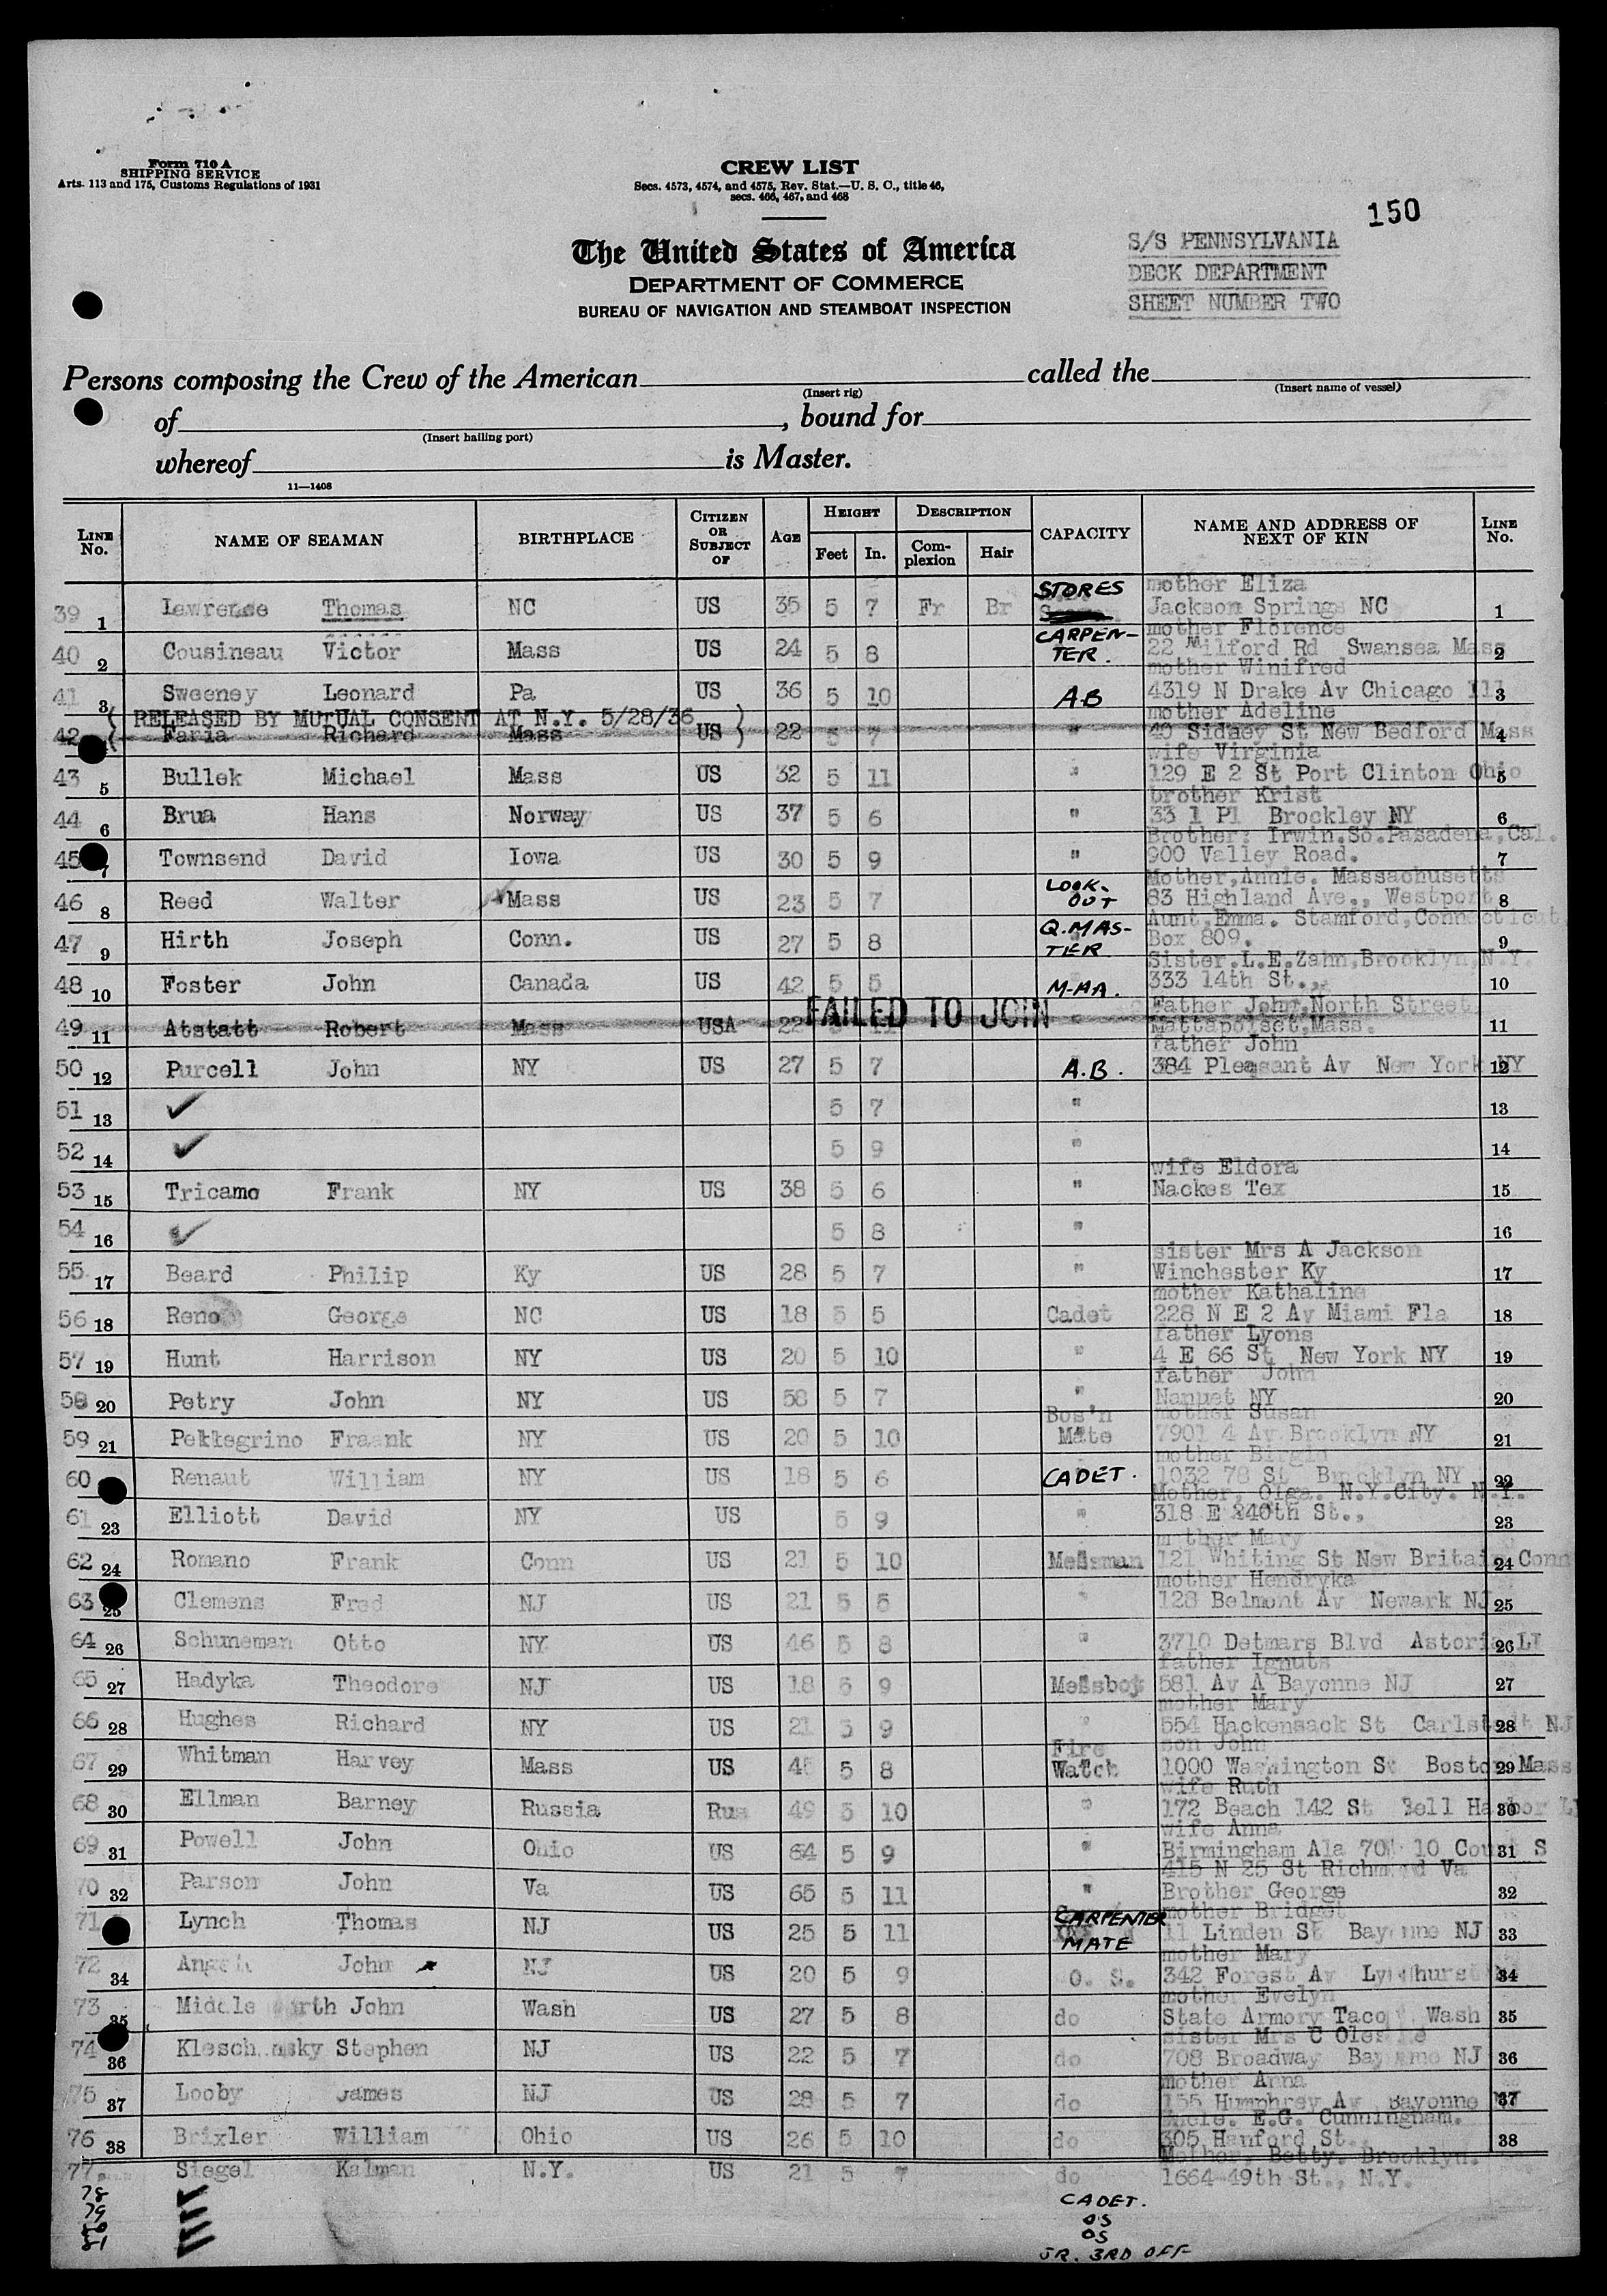 Form 710 A
SHIPPING SERVICE
Arts. 113 and 175, Customs Regulations of 1931
CREW LIST
Secs. 4573, 4574, and 4575, Rev. Stat.—U. S. C., title 46,
secs. 466, 467, and 468
150
The United States of America
DEPARTMENT OF COMMERCE
BUREAU OF NAVIGATION AND STEAMBOAT INSPECTION
S/S PENNSYLVANIA
DECK DEPARTMENT
SHEET NUMBER TWO
Persons composing the Crew of the American called the
(Insert rig) (Insert name of vessel)
of , bound for
(Insert hailing port)
whereof is Master.
11—1408
LINE No. NAME OF SEAMAN BIRTHPLACE CITIZEN OR SUBJECT OF AGE HEIGHT Feet In. DESCRIPTION Complexion Hair CAPACITY NAME AND ADDRESS OF NEXT OF KIN LINE No.
mother Eliza
39 1 Lawrence Thomas NC US 35 5 7 Fr Br STORES Jackson Springs NC 1
mother Florence
40 2 Cousineau Victor Mass US 24 5 8 CARPEN-TER. 22 Milford Rd Swansea Mass 2
mother Winifred
41 3 Sweeney Leonard Pa US 36 5 10 A.B 4319 N Drake Av Chicago Ill 3
( RELEASED BY MUTUAL CONSENT AT N.Y. 5/28/36 ) mother Adeline
42 Faria Richard Mass US 22 5 7 " 40 Sidney St New Bedford Mass 4
wife Virginia
43 5 Bullek Michael Mass US 32 5 11 " 129 E 2 St Port Clinton Ohio 5
brother Krist
44 6 Brua Hans Norway US 37 5 6 " 33 1 Pl Brockley NY 6
Brother: Irwin.So.Pasadena,Cal.
45 7 Townsend David Iowa US 30 5 9 " 900 Valley Road. 7
Mother,Annie. Massachusetts
46 8 Reed Walter Mass US 23 5 7 LOOK-OUT 83 Highland Ave., Westport 8
Aunt,Emma. Stamford,Connecticut
47 9 Hirth Joseph Conn. US 27 5 8 Q.MAS-TER Box 809. 9
Sister.L.E.Zahn,Brooklyn,N.Y.
48 10 Foster John Canada US 42 5 5 M-AA. 333 14th St., 10
FAILED TO JOIN Father John,North Street
49 11 Atstatt Robert Mass USA 22 11 " Mattapoiset,Mass. 11
father John
50 12 Purcell John NY US 27 5 7 A.B. 384 Pleasant Av New York NY 12
51 13 ✓ 5 7 " 13
52 14 ✓ 5 9 " 14
wife Eldora
53 15 Tricamo Frank NY US 38 5 6 " Nackes Tex 15
54 16 ✓ 5 8 " 16
sister Mrs A Jackson
55 17 Beard Philip Ky US 28 5 7 " Winchester Ky 17
mother Kathaline
56 18 Reno George NC US 18 5 5 Cadet 228 N E 2 Av Miami Fla 18
father Lyons
57 19 Hunt Harrison NY US 20 5 10 " 4 E 66 St New York NY 19
father John
58 20 Petry John NY US 58 5 7 " Nanuet NY 20
Bos'n mother Susan
59 21 Pellegrino Fraank NY US 20 5 10 Mate 7901 4 Av Brooklyn NY 21
mother Birgid
60 Renaut William NY US 18 5 6 CADET. 1032 78 St Brooklyn NY 22
Mother, Olga. N.Y.City. N.Y.
61 23 Elliott David NY US 5 9 " 318 E 240th St., 23
mother Mary
62 24 Romano Frank Conn US 21 5 10 Messman 121 Whiting St New Britain Conn 24
mother Hendryka
63 25 Clemens Fred NJ US 21 5 5 " 128 Belmont Av Newark NJ 25
64 26 Schuneman Otto NY US 46 5 8 " 3710 Detmars Blvd Astoria LI 26
father Ignuts
65 27 Hadyka Theodore NJ US 18 5 9 Messboy 581 Av A Bayonne NJ 27
mother Mary
66 28 Hughes Richard NY US 21 5 9 " 554 Hackensack St Carlstadt NJ 28
Fire son John
67 29 Whitman Harvey Mass US 48 5 8 Watch 1000 Washington St Boston Mass 29
wife Ruth
68 30 Ellman Barney Russia Rus 49 5 10 " 172 Beach 142 St Bell Harbor LI 30
wife Anna
69 31 Powell John Ohio US 64 5 9 " Birmingham Ala 10 Court S 31
415 N 25 St Richmond Va
70 32 Parson John Va US 65 5 11 " Brother George 32
mother Bridget
71 Lynch Thomas NJ US 25 5 11 CARPENTER MATE 11 Linden St Bayonne NJ 33
mother Mary
72 34 John NJ US 20 5 9 O. S. 342 Forest Av Lyndhurst 34
mother Evelyn
73 35 Middleworth John Wash US 27 5 8 do State Armory Tacoma Wash 35
sister Mrs C
74 36 Stephen NJ US 22 5 7 do 708 Broadway Bayonne NJ 36
mother Anna
75 37 Looby James NJ US 28 5 7 do 155 Humphrey Av Bayonne NJ 37
Uncle. E.G. Cunningham.
76 38 Brixler William Ohio US 26 5 10 do 305 Hanford St. 38
Mother, Betty. Brooklyn.
77 Siegel Kalman N.Y. US 21 5 7 do 1664-49th St., N.Y.
78 CADET.
79 OS
80 OS
81 JR. 3RD OFF